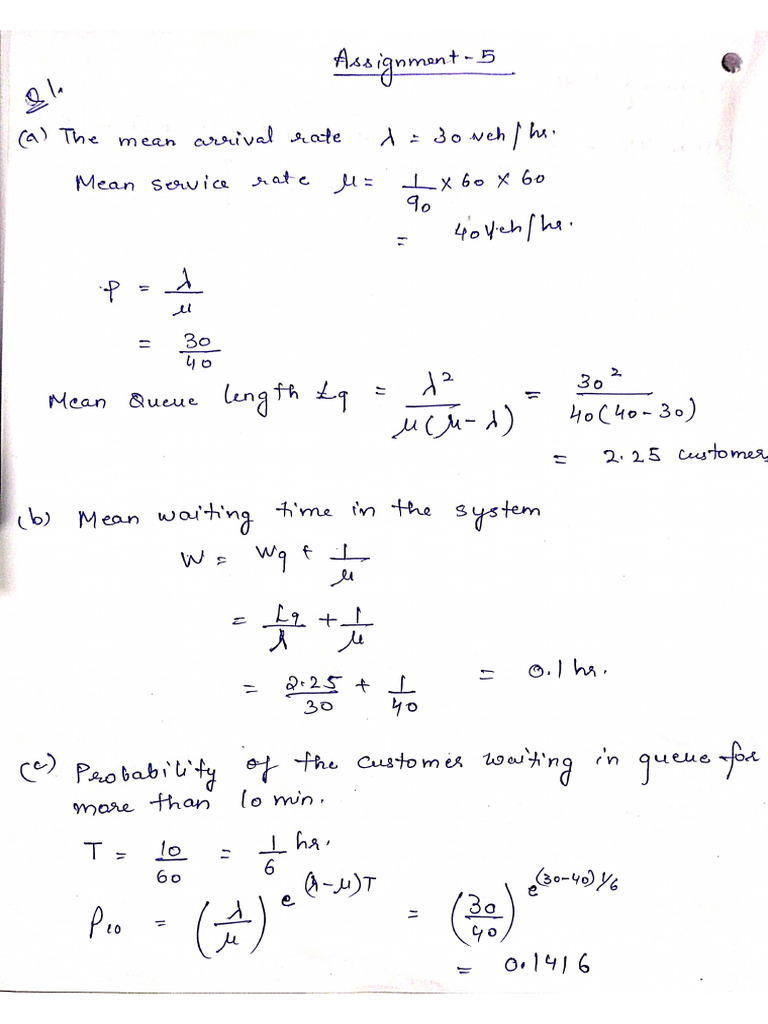 Assignment-5
Q1.
(a) The mean arrival rate λ = 30 veh/hr.
Mean service rate μ = 1/90 × 60 × 60
= 40 veh/hr.
ρ = λ/μ
= 30/40
Mean Queue length Lq = λ²/μ(μ-λ) = 30²/40(40-30)
= 2.25 customers
(b) Mean waiting time in the system
W = Wq + 1/μ
= Lq/λ + 1/μ
= 2.25/30 + 1/40 = 0.1 hr.
(c) Probability of the customer waiting in queue for
more than 10 min.
T = 10/60 = 1/6 hr.
P10 = (λ/μ) e^(λ-μ)T = (30/40) e^(30-40)1/6
= 0.1416